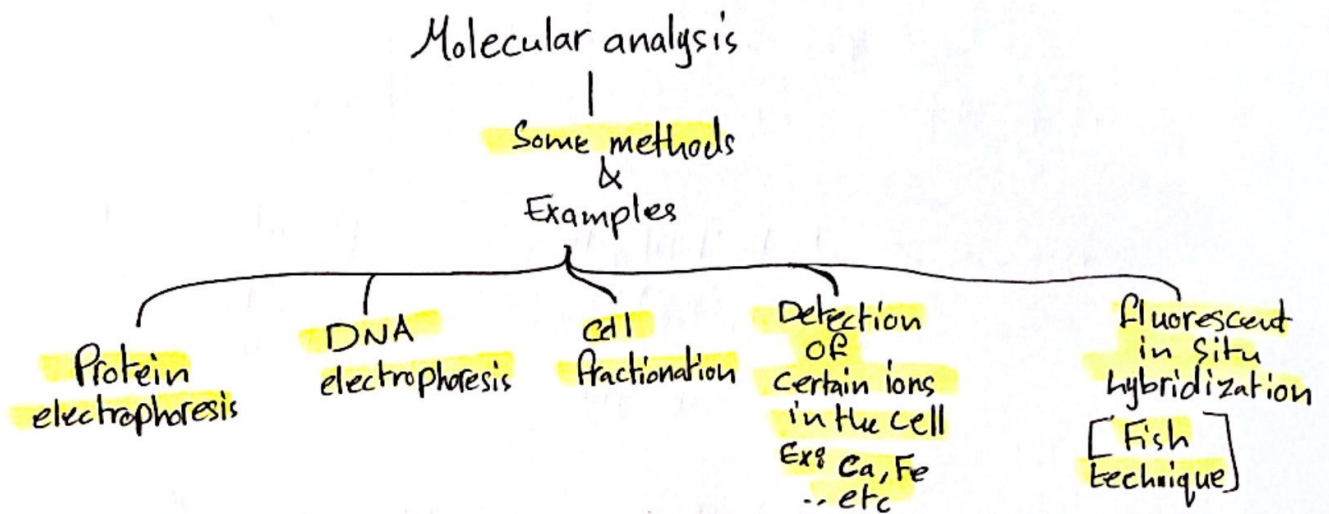 Molecular analysis
Some methods
&
Examples
Protein
electrophoresis
DNA
electrophoresis
Cell
fractionation
Detection
of
Certain ions
in the cell
Ex: Ca, Fe
.. etc
fluorescent
in situ
hybridization
[Fish
technique]